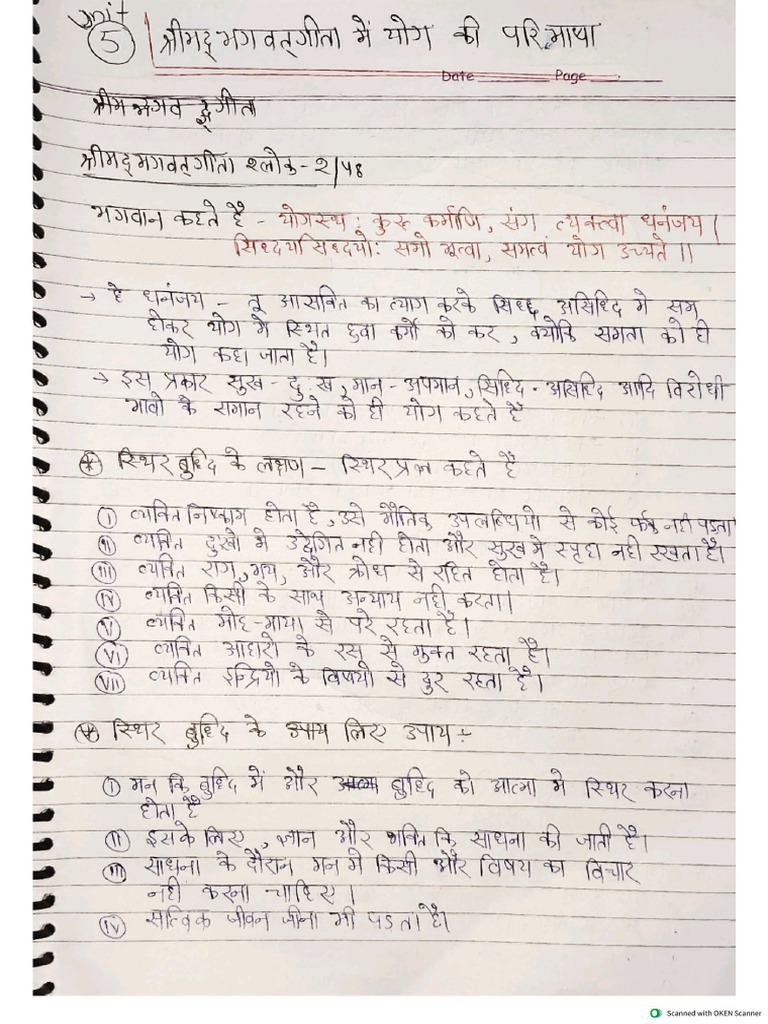 unit
5
श्रीमद् भगवत्गीता में योग की परिभाषा
Date Page
श्रीमद्भगवत्गीता श्लोक - २/५४
भगवान कहते है - योगस्थ: कुरू कर्माणि, संग त्यक्त्वा धनंजय।
सिध्दयसिध्दयो: समो भूत्वा, समत्वं योग उच्यते।।
→ हे धनंजय - तू आसक्ति का त्याग करके सिध्द असिध्दि मे सम
होकर योग मे स्थित हुवा कर्मो को कर, क्योकि समता को ही
योग कहा जाता है।
→ इस प्रकार सुख - दु:ख, मान - अपमान, सिध्दि - असिध्दि आदि विरोधी
भावो के समान रहने को ही योग कहते है
* स्थिर बुध्दि के लक्षण - स्थिरप्रज्ञ कहते है
I व्यक्ति निष्काम होता है, उसे भौतिक उपलब्धियो से कोई फर्क नही पडता
II व्यक्ति दुखो मे उद्वेगित नही होता और सुख मे स्पृहा नही रखता है।
III व्यक्ति राग, भय, और क्रोध से रहित होता है।
IV व्यक्ति किसी के साथ अन्याय नही करता।
V व्यक्ति मोह-माया से परे रहता है।
VI व्यक्ति आहारो के रस से मुक्त रहता है।
VII व्यक्ति इन्द्रियो के विषयो से दुर रहता है।
* स्थिर बुध्दि के उपाय लिए उपाय :-
I मन कि बुध्दि में और बुध्दि को आत्मा मे स्थिर करना
होता है
II इसके लिए, ज्ञान और भक्ति कि साधना की जाती है।
III साधना के दौरान मन मे किसी और विषय का विचार
नही करना चाहिए।
IV सत्विक जीवन जीना भी पडता है।
Scanned with OKEN Scanner